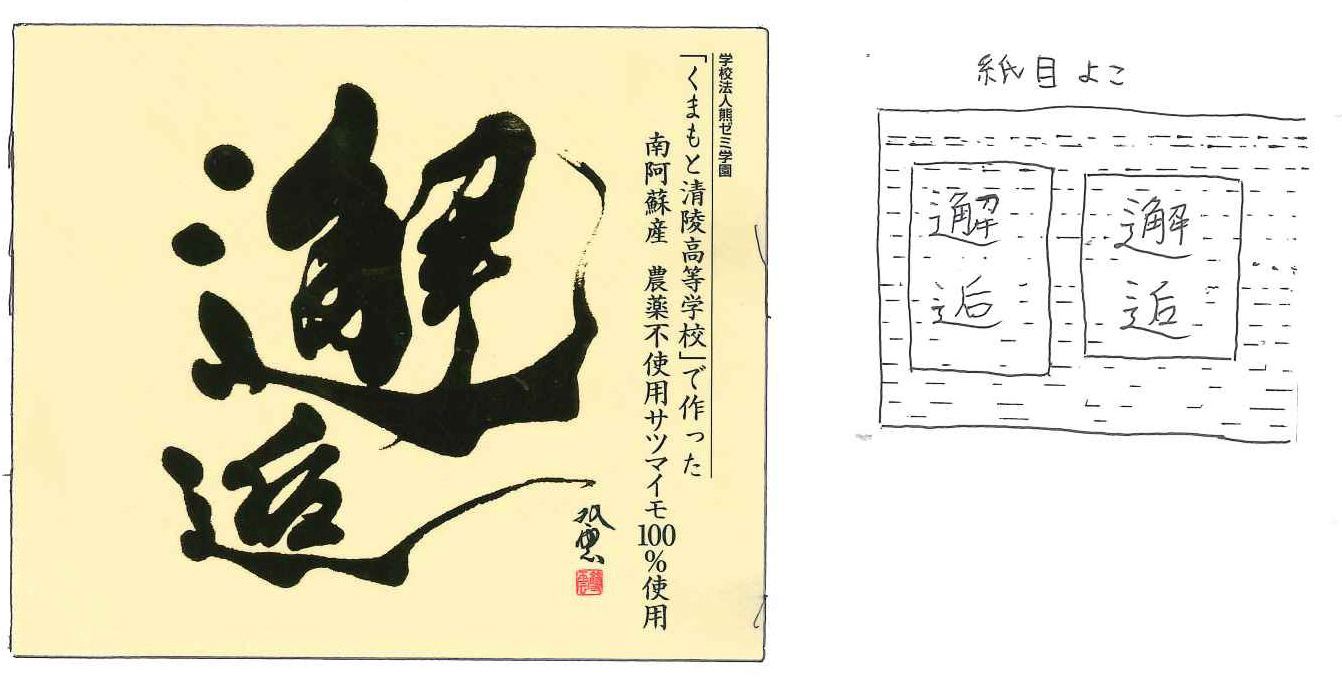 学校法人熊ゼミ学園
「くまもと清陵高等学校」で作った
南阿蘇産 農薬不使用サツマイモ100%使用
邂逅
紙目よこ
邂逅
邂逅